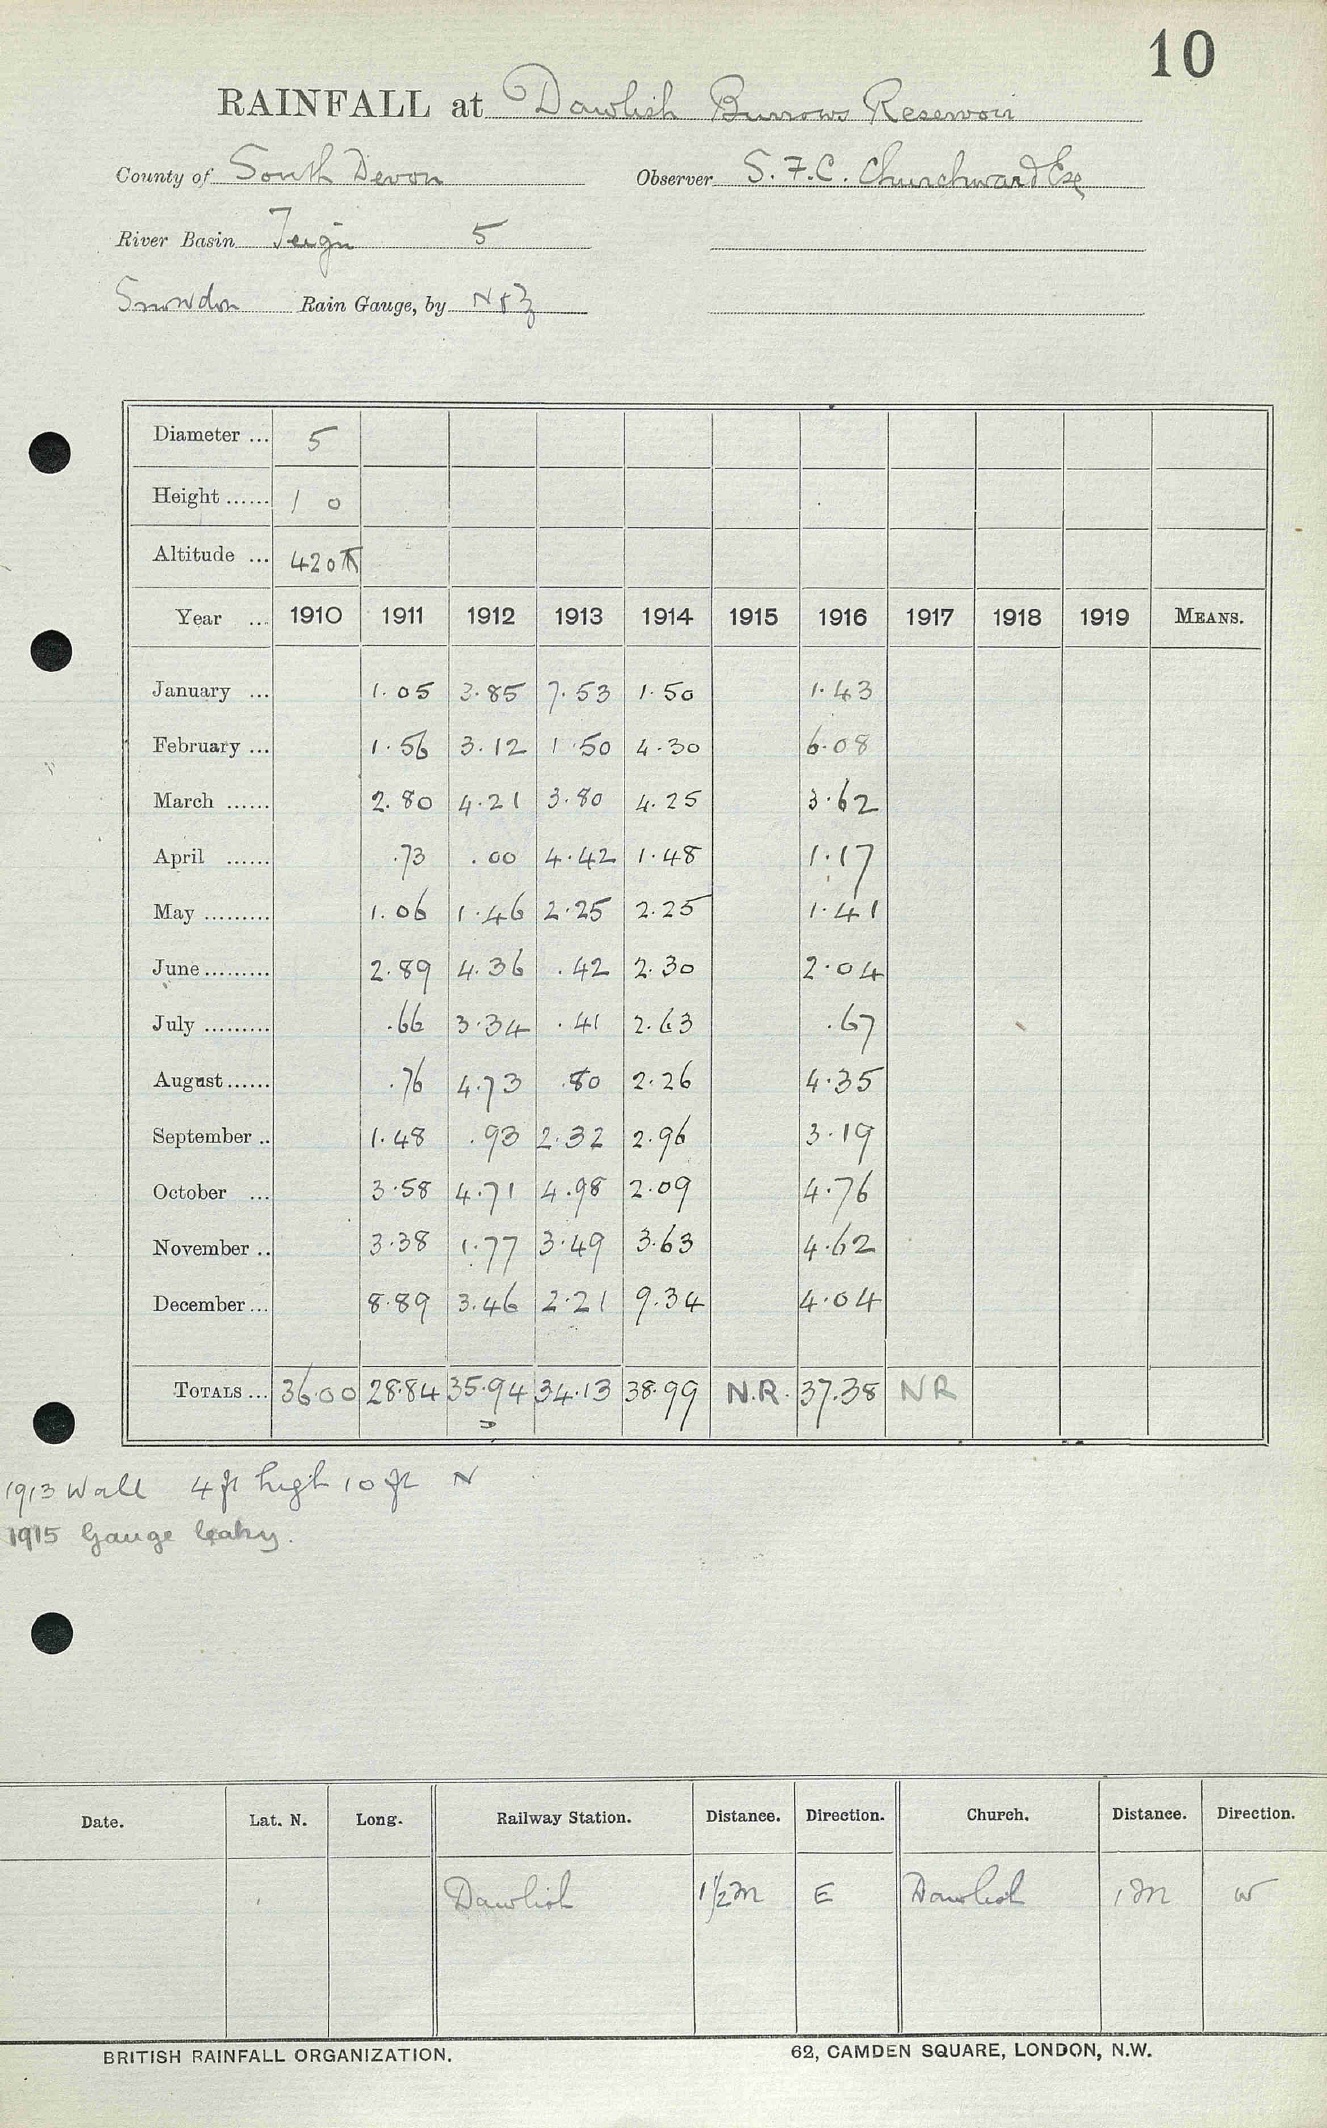 10
RAINFALL at Dawlish Burrows Reservoir
County of South Devon Observer S. F. C. Churchward Esq
River Basin Teign 5
Snowdon Rain Gauge, by N & Z
Diameter ... 5
Height ...... 1 0
Altitude ... 420 ft
Year ... 1910 1911 1912 1913 1914 1915 1916 1917 1918 1919 MEANS.
January ... 1.05 3.85 7.53 1.50 1.43
February ... 1.56 3.12 1.50 4.30 6.08
March ...... 2.80 4.21 3.80 4.25 3.62
April ...... .73 .00 4.42 1.48 1.17
May ......... 1.06 1.46 2.25 2.25 1.41
June ......... 2.89 4.36 .42 2.30 2.04
July ......... .66 3.34 .41 2.63 .67
August ...... .76 4.73 .80 2.26 4.35
September .. 1.48 .93 2.32 2.96 3.19
October ... 3.58 4.71 4.98 2.09 4.76
November .. 3.38 1.77 3.49 3.63 4.62
December ... 8.89 3.46 2.21 9.34 4.04
TOTALS ... 36.00 28.84 35.94 34.13 38.99 N.R. 37.38 NR
1913 Wall 4 ft high 10 ft N
1915 Gauge leaky.
Date. Lat. N. Long. Railway Station. Distance. Direction. Church. Distance. Direction.
Dawlish 1½ m E Dawlish 1 m W
BRITISH RAINFALL ORGANIZATION. 62, CAMDEN SQUARE, LONDON, N.W.